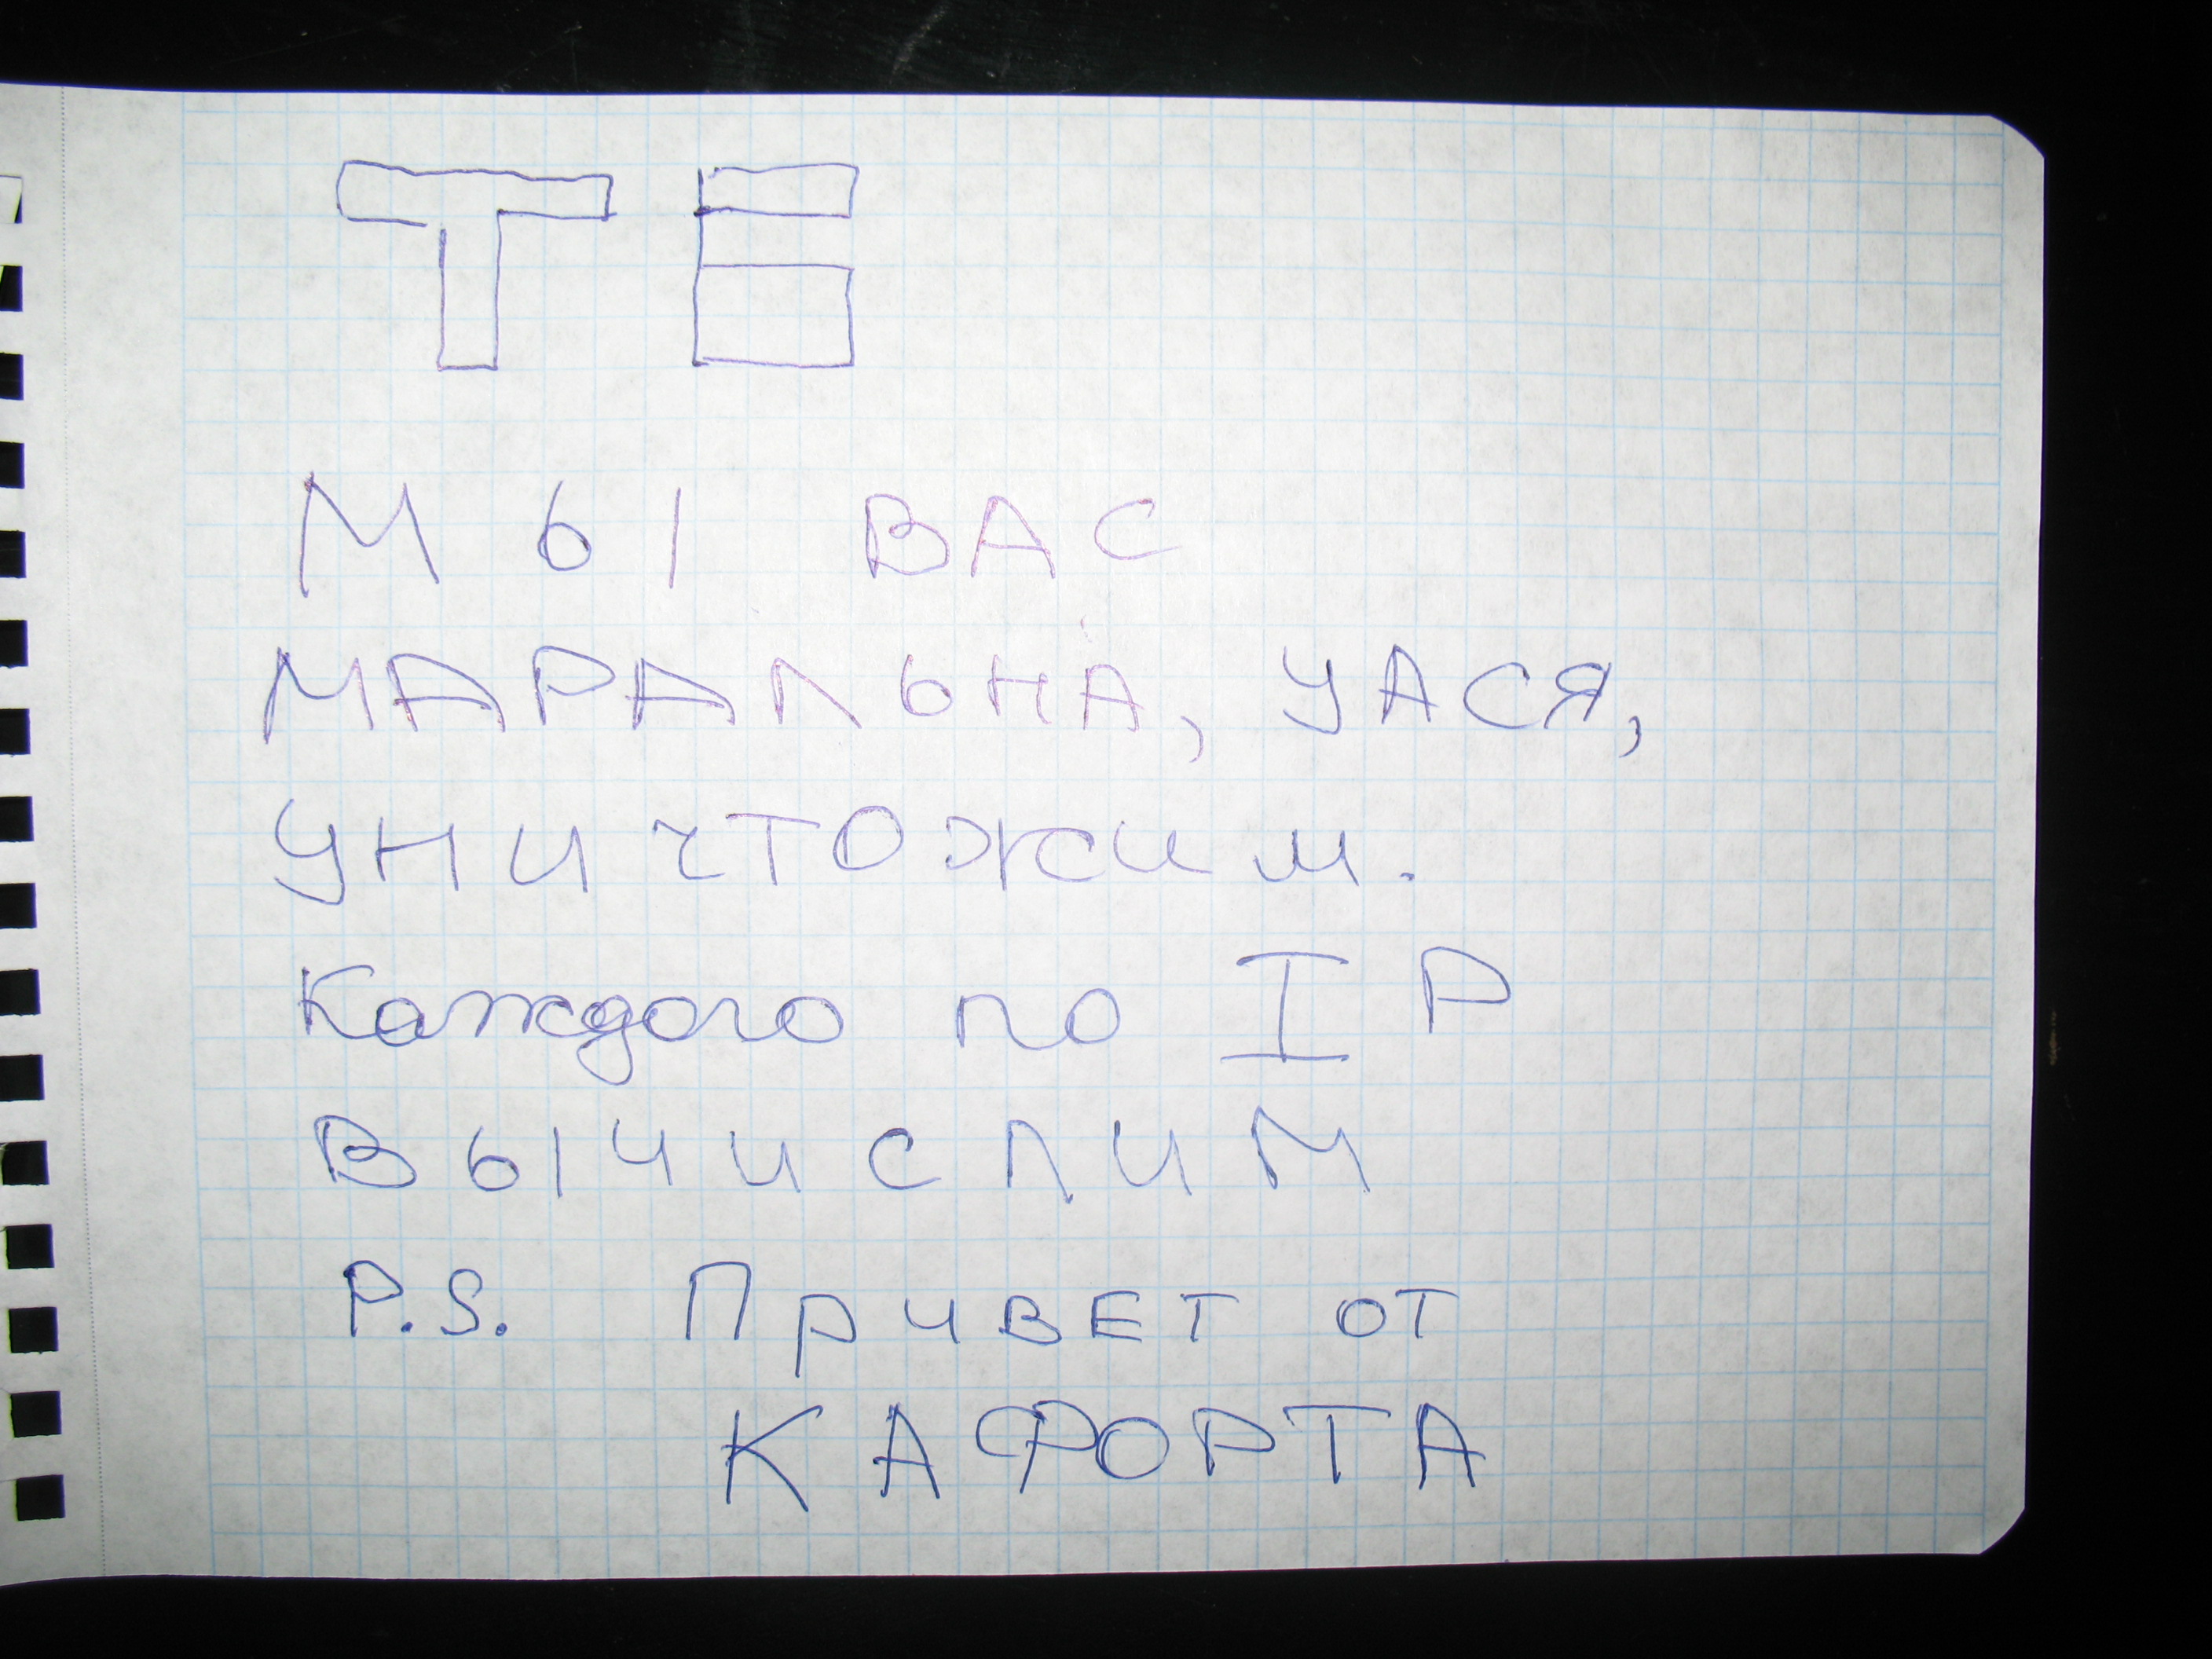 ТБ
МЫ ВАС
МАРАЛЬНА, УАСЯ,
УНИЧТОЖИМ.
Каждого по IP
ВЫЧИСЛИМ
P.S. ПРИВЕТ ОТ
КАФОРТА